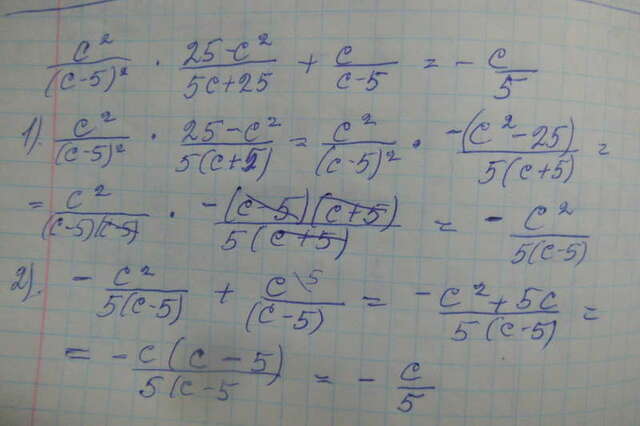 c²/(c-5)² · 25-c²/5c+25 + c/c-5 = - c/5
1). c²/(c-5)² · 25-c²/5(c+5) = c²/(c-5)² · -(c²-25)/5(c+5) =
= c²/(c-5)(c-5) · -(c-5)(c+5)/5(c+5) = - c²/5(c-5)
2). - c²/5(c-5) + c\5/(c-5) = -c²+5c/5(c-5) =
= -c(c-5)/5(c-5 = - c/5